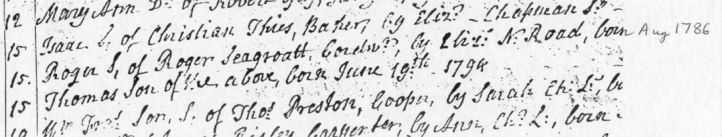 12 Mary Ann D. of Robert
15 Isaac S, of Christian Thies, Baker, by Eliz.ᵃ - Chapman S.ᵗ
15. Roger S, of Roger Seagroatt, Cordw.ʳ, by Eliz.ᵃ N. Road, born Aug 1786
15 Thomas Son of ye above, born June 19.th 1794
Son, S. of Tho.ˢ Preston, Cooper, by Sarah Ch: L:,
Carpenter, by Ann, Ch: L:, born